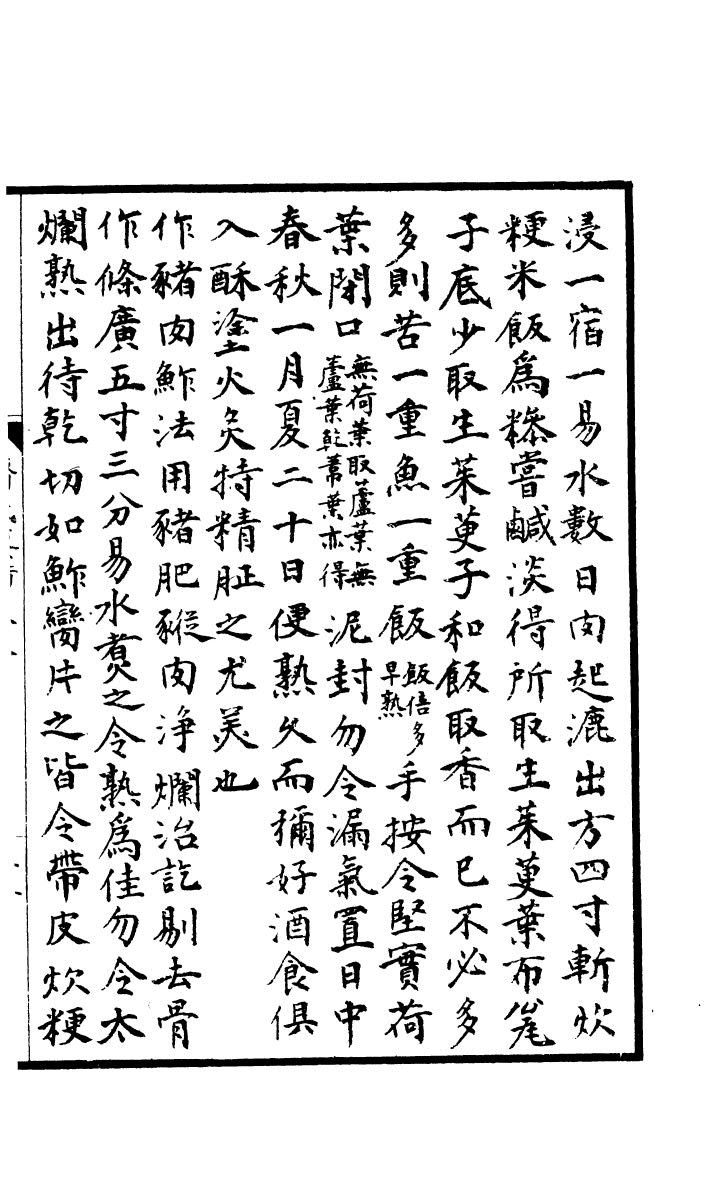 浸一宿一易水數日肉起漉出方四寸斬炊
粳米飯爲糝嘗鹹淡得所取生茱萸葉布甕
子底少取生茱萸子和飯取香而已不必多
多則苦一重魚一重飯飯倍多早熟手按令堅實荷
葉閉口無荷葉取蘆葉無蘆葉乾葦葉亦得泥封勿令漏氣置日中
春秋一月夏二十日便熟久而彌好酒食俱
入酥塗火炙特精脏之尤美也
作豬肉鮓法用豬肥豵肉浄爛治訖剔去骨
作條廣五寸三分易水煑之令熟爲佳勿令太
爛熟出待乾切如鮓臠片之皆令帶皮炊粳